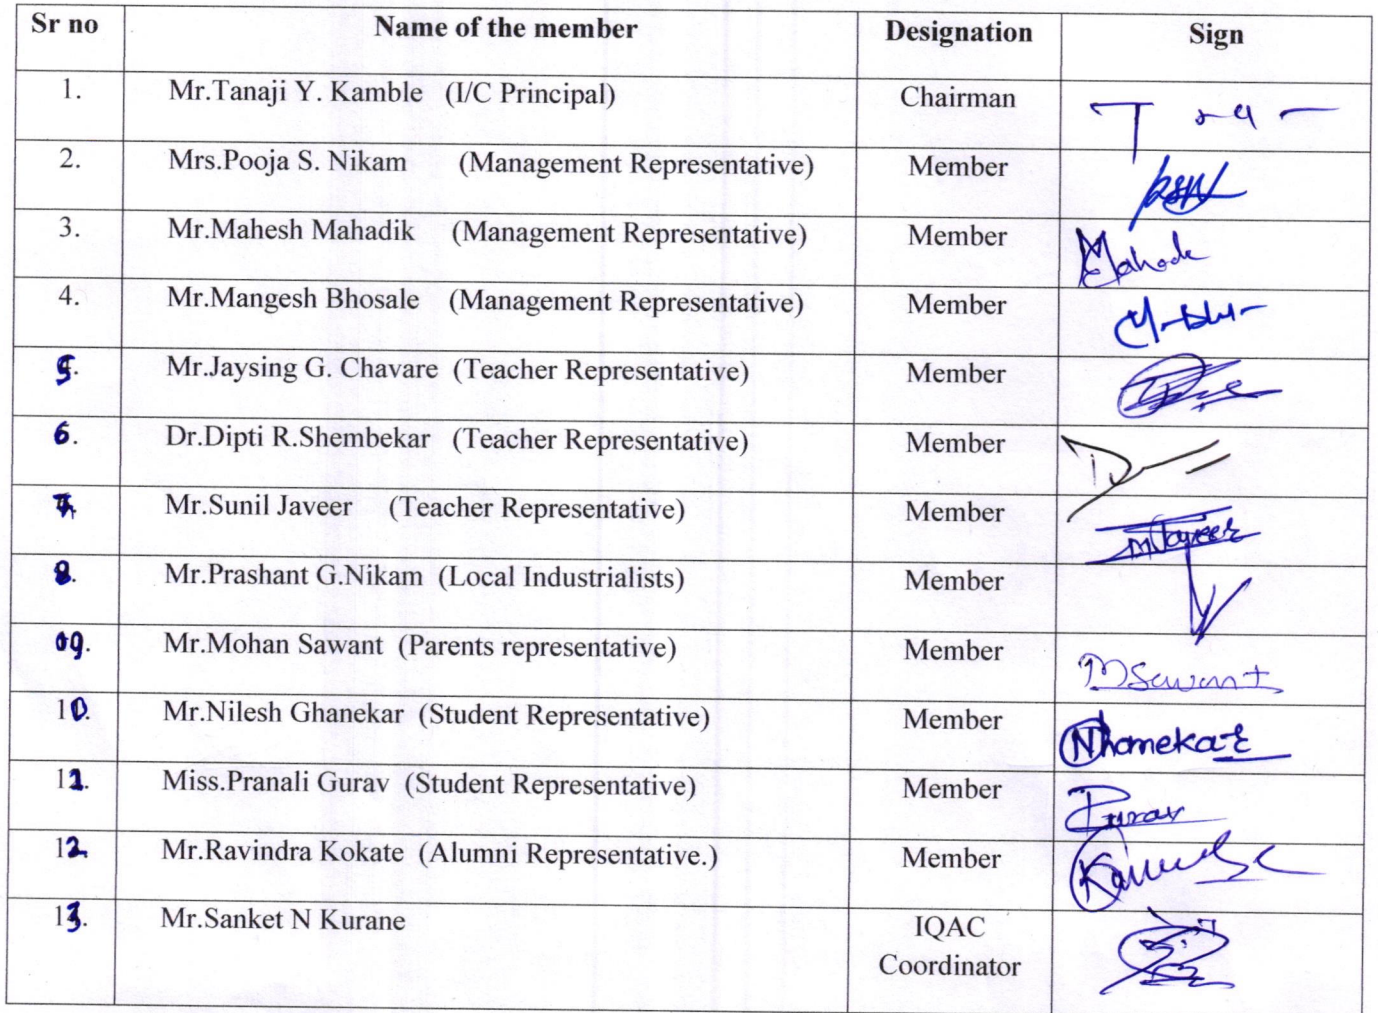 Sr no Name of the member Designation Sign
1. Mr.Tanaji Y. Kamble (I/C Principal) Chairman
2. Mrs.Pooja S. Nikam (Management Representative) Member
3. Mr.Mahesh Mahadik (Management Representative) Member
4. Mr.Mangesh Bhosale (Management Representative) Member
5. Mr.Jaysing G. Chavare (Teacher Representative) Member
6. Dr.Dipti R.Shembekar (Teacher Representative) Member
7. Mr.Sunil Javeer (Teacher Representative) Member
8. Mr.Prashant G.Nikam (Local Industrialists) Member
09. Mr.Mohan Sawant (Parents representative) Member MSawant
10. Mr.Nilesh Ghanekar (Student Representative) Member
11. Miss.Pranali Gurav (Student Representative) Member
12. Mr.Ravindra Kokate (Alumni Representative.) Member
13. Mr.Sanket N Kurane IQAC
Coordinator